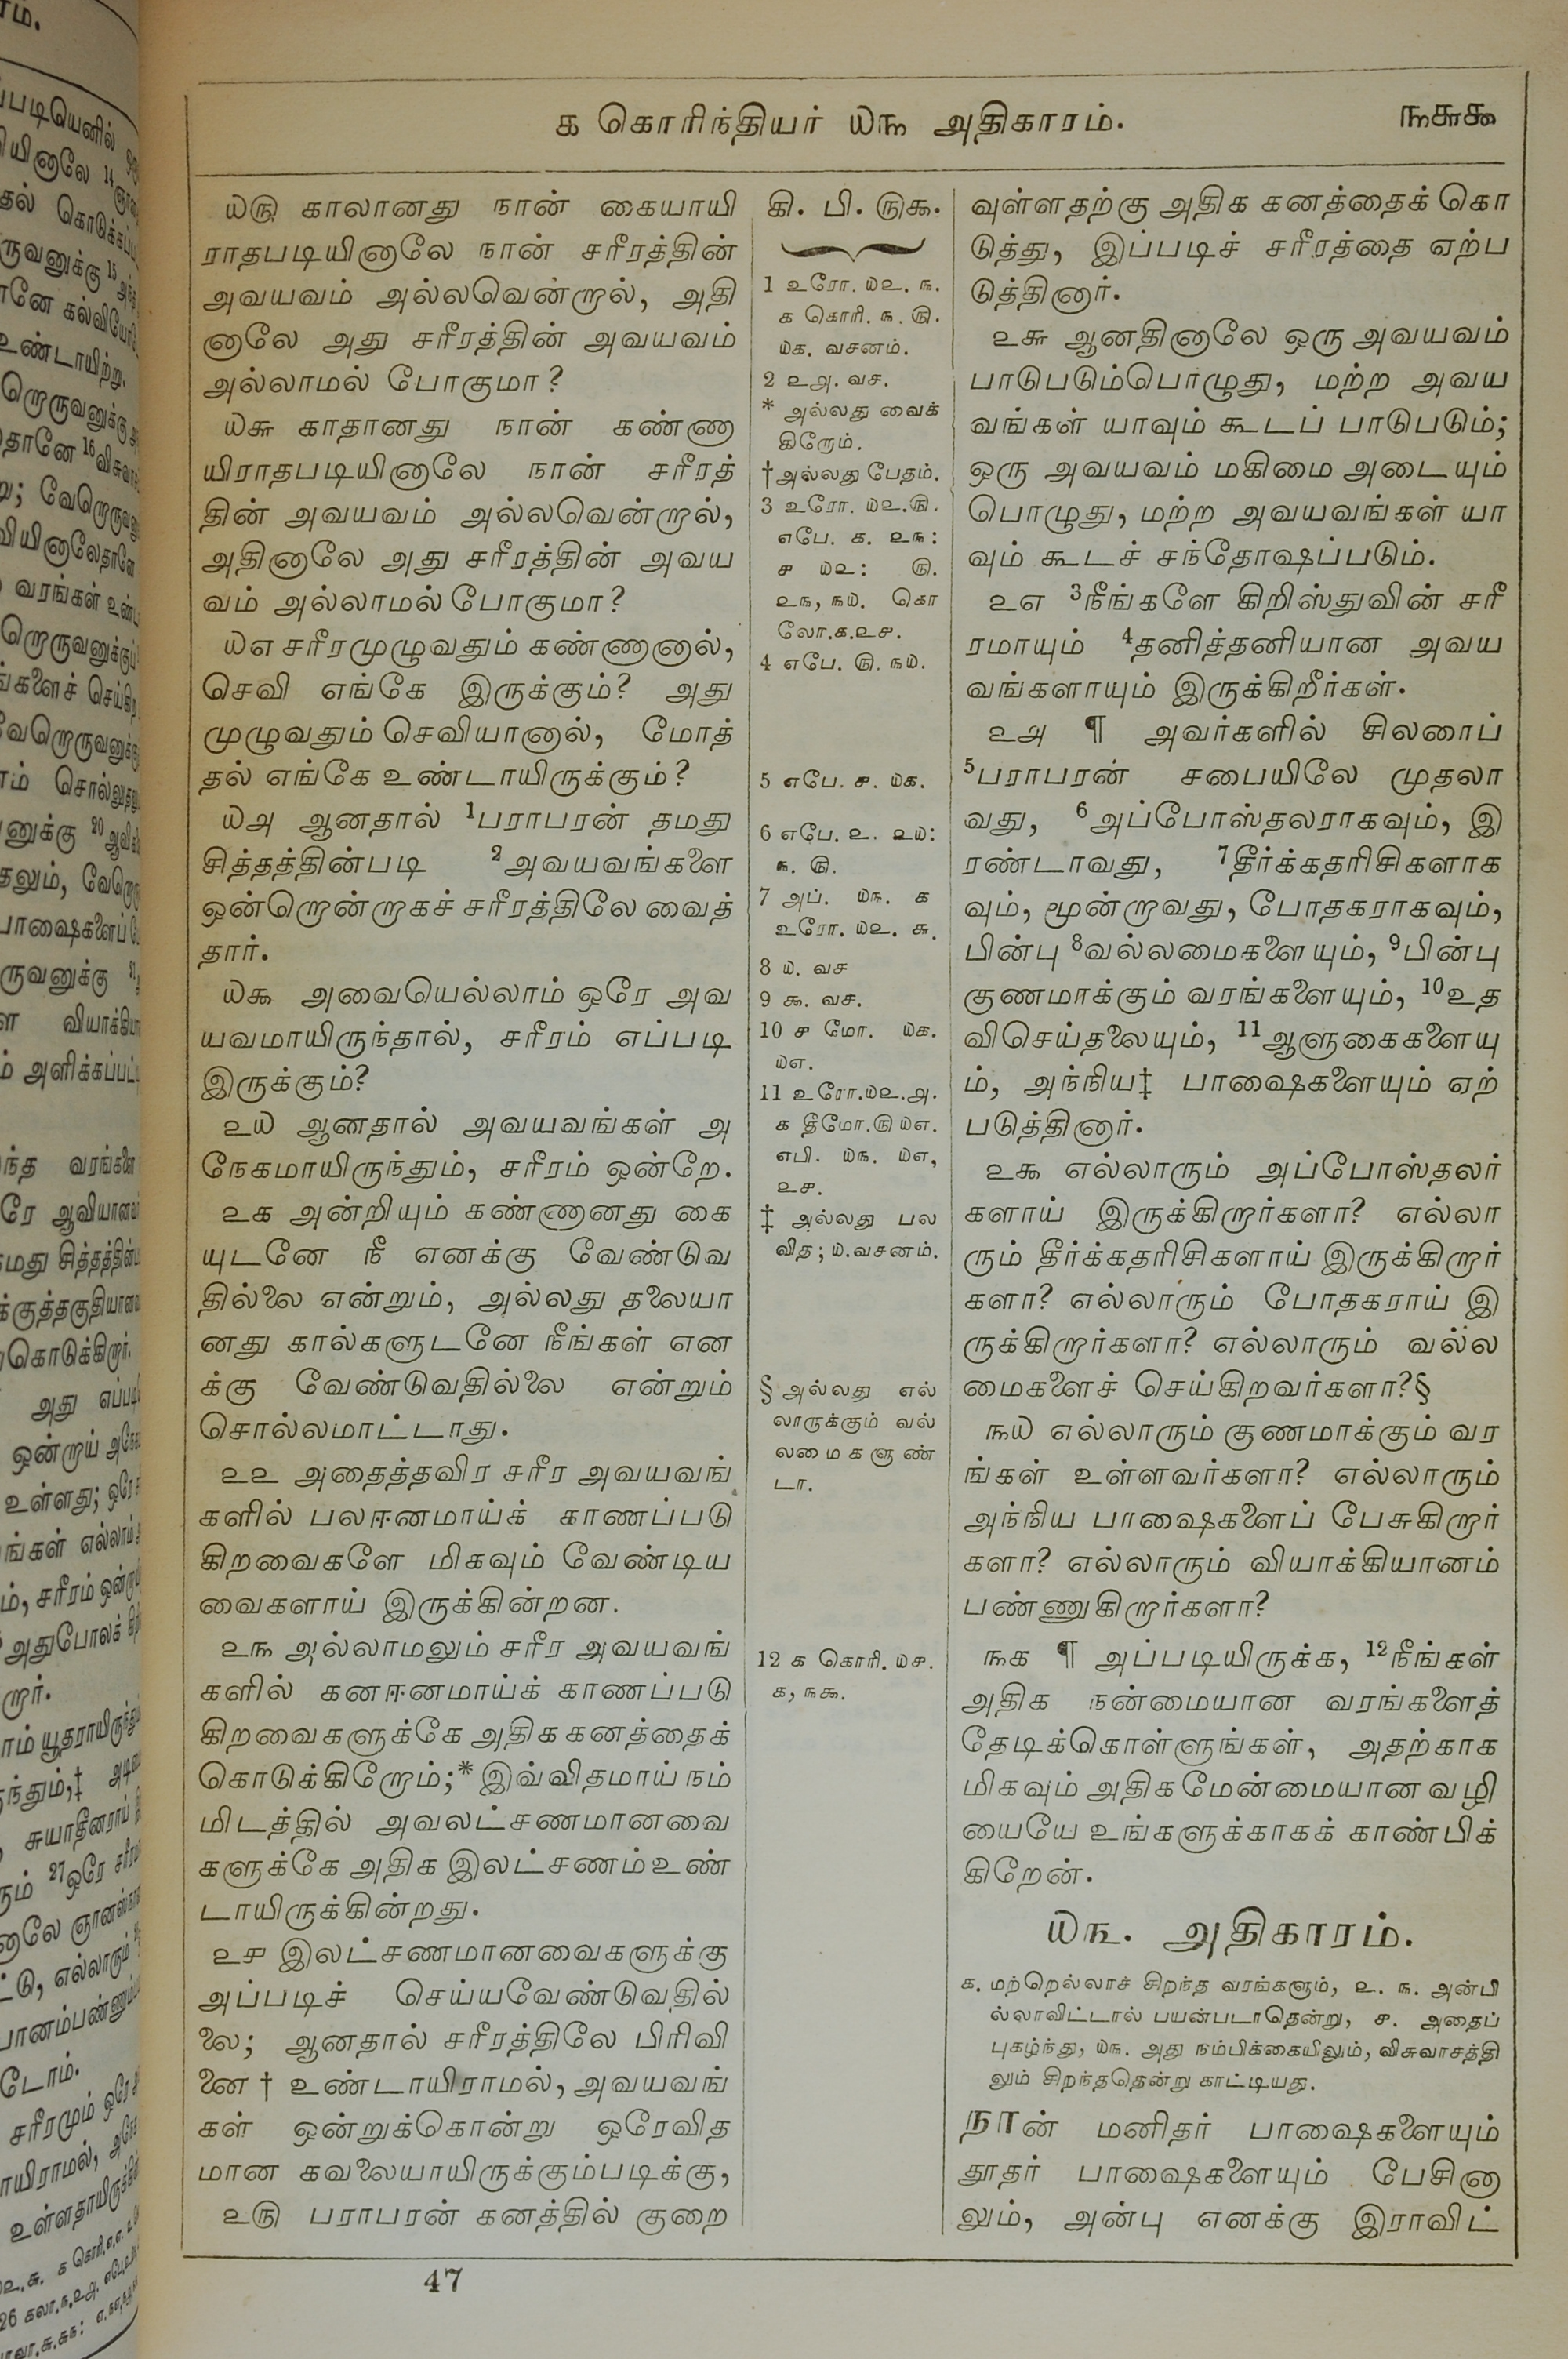 ௧ கொரிந்தியர் ௰௩ அதிகாரம்.
௩௬௯
௰௫ காலானது நான் கையாயி
ராதபடியினாலே நான் சரீரத்தின்
அவயவம் அல்லவென்றால், அதி
னாலே அது சரீரத்தின் அவயவம்
அல்லாமல் போகுமா?
௰௬ காதானது நான் கண்ணா
யிராதபடியினாலே நான் சரீரத்
தின் அவயவம் அல்லவென்றால்,
அதினாலே அது சரீரத்தின் அவய
வம் அல்லாமல் போகுமா?
௰௭ சரீரமுழுவதும் கண்ணானால்,
செவி எங்கே இருக்கும்? அது
முழுவதும் செவியானால், மோத்
தல் எங்கே உண்டாயிருக்கும்?
௰௮ ஆனதால் 1பராபரன் தமது
சித்தத்தின்படி 2அவயவங்களை
ஒன்றொன்றாகச் சரீரத்திலே வைத்
தார்.
௰௯ அவையெல்லாம் ஒரே அவ
யவமாயிருந்தால், சரீரம் எப்படி
இருக்கும்?
௨௰ ஆனதால் அவயவங்கள் அ
நேகமாயிருந்தும், சரீரம் ஒன்றே.
௨௧ அன்றியும் கண்ணானது கை
யுடனே நீ எனக்கு வேண்டுவ
தில்லை என்றும், அல்லது தலையா
னது கால்களுடனே நீங்கள் என
க்கு வேண்டுவதில்லை என்றும்
சொல்லமாட்டாது.
௨௨ அதைத்தவிர சரீர அவயவங்
களில் பலஈனமாய்க் காணப்படு
கிறவைகளே மிகவும் வேண்டிய
வைகளாய் இருக்கின்றன.
௨௩ அல்லாமலும் சரீர அவயவங்
களில் கனஈனமாய்க் காணப்படு
கிறவைகளுக்கே அதிக கனத்தைக்
கொடுக்கிறோம்;* இவ்விதமாய் நம்
மிடத்தில் அவலட்சணமானவை
களுக்கே அதிக இலட்சணம் உண்
டாயிருக்கின்றது.
௨௪ இலட்சணமானவைகளுக்கு
அப்படிச் செய்யவேண்டுவதில்
லை; ஆனதால் சரீரத்திலே பிரிவி
னை † உண்டாயிராமல், அவயவங்
கள் ஒன்றுக்கொன்று ஒரேவித
மான கவலையாயிருக்கும்படிக்கு,
௨௫ பராபரன் கனத்தில் குறை
கி. பி. ௫௯.
1 உரோ. ௰௨. ௩.
௧ கொரி. ௩. ௫.
௰௧. வசனம்.
2 ௨௮. வச.
* அல்லது வைக்
கிறோம்.
† அல்லது பேதம்.
3 உரோ. ௰௨.௫.
எபே. ௧. ௨௩:
௪ ௰௨: ௫.
௨௩, ௩௰. கொ
லோ.௧.௨௪.
4 எபே. ௫. ௩௰.
5 எபே. ௪. ௰௧.
6 எபே. ௨. ௨௰:
௩. ௫.
7 அப். ௰௩. ௧
உரோ. ௰௨. ௬.
8 ௰. வச
9 ௯. வச.
10 ௪ மோ. ௰௧.
௰௭.
11 உரோ.௰௨.௮.
௧ தீமோ.௫ ௰௭.
எபி. ௰௩. ௰௭,
௨௪.
‡ அல்லது பல
வித; ௰.வசனம்.
§ அல்லது எல்
லாருக்கும் வல்
லமைகளுண்
டா.
12 ௧ கொரி. ௰௪.
௧, ௩௯.
வுள்ளதற்கு அதிக கனத்தைக் கொ
டுத்து, இப்படிச் சரீரத்தை ஏற்ப
டுத்தினார்.
௨௬ ஆனதினாலே ஒரு அவயவம்
பாடுபடும்பொழுது, மற்ற அவய
வங்கள் யாவும் கூடப் பாடுபடும்;
ஒரு அவயவம் மகிமை அடையும்
பொழுது, மற்ற அவயவங்கள் யா
வும் கூடச் சந்தோஷப்படும்.
௨௭ 3நீங்களே கிறிஸ்துவின் சரீ
ரமாயும் 4தனித்தனியான அவய
வங்களாயும் இருக்கிறீர்கள்.
௨௮ ¶ அவர்களில் சிலரைப்
5பராபரன் சபையிலே முதலா
வது, 6அப்போஸ்தலராகவும், இ
ரண்டாவது, 7தீர்க்கதரிசிகளாக
வும், மூன்றாவது, போதகராகவும்,
பின்பு 8வல்லமைகளையும், 9பின்பு
குணமாக்கும் வரங்களையும், 10உத
விசெய்தலையும், 11ஆளுகைகளையு
ம், அந்நிய‡ பாஷைகளையும் ஏற்
படுத்தினார்.
௨௯ எல்லாரும் அப்போஸ்தலர்
களாய் இருக்கிறார்களா? எல்லா
ரும் தீர்க்கதரிசிகளாய் இருக்கிறார்
களா? எல்லாரும் போதகராய் இ
ருக்கிறார்களா? எல்லாரும் வல்ல
மைகளைச் செய்கிறவர்களா?§
௩௰ எல்லாரும் குணமாக்கும் வர
ங்கள் உள்ளவர்களா? எல்லாரும்
அந்நிய பாஷைகளைப் பேசுகிறார்
களா? எல்லாரும் வியாக்கியானம்
பண்ணுகிறார்களா?
௩௧ ¶ அப்படியிருக்க, 12நீங்கள்
அதிக நன்மையான வரங்களைத்
தேடிக்கொள்ளுங்கள், அதற்காக
மிகவும் அதிக மேன்மையான வழி
யையே உங்களுக்காகக் காண்பிக்
கிறேன்.
௰௩. அதிகாரம்.
௧. மற்றெல்லாச் சிறந்த வரங்களும், ௨. ௩. அன்பி
ல்லாவிட்டால் பயன்படாதென்று, ௪. அதைப்
புகழ்ந்து, ௰௩. அது நம்பிக்கையிலும், விசுவாசத்தி
லும் சிறந்ததென்று காட்டியது.
நான் மனிதர் பாஷைகளையும்
தூதர் பாஷைகளையும் பேசினா
லும், அன்பு எனக்கு இராவிட்
47